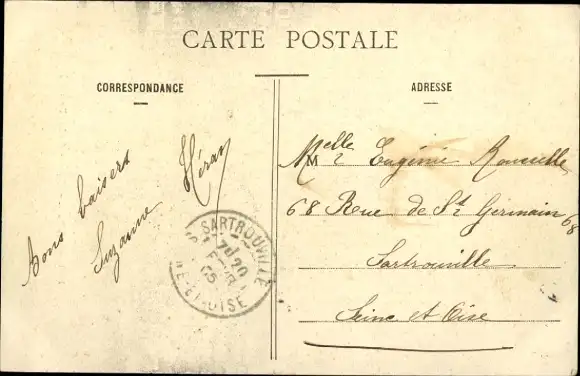 CARTE POSTALE
CORRESPONDANCE
ADRESSE
Bons baisers
Suzanne Héran
Melle Eugénie
68 Rue de St Germain 68
Sartrouville
Seine et Oise
SARTROUVILLE
7H 20
05
NE-ET-OISE